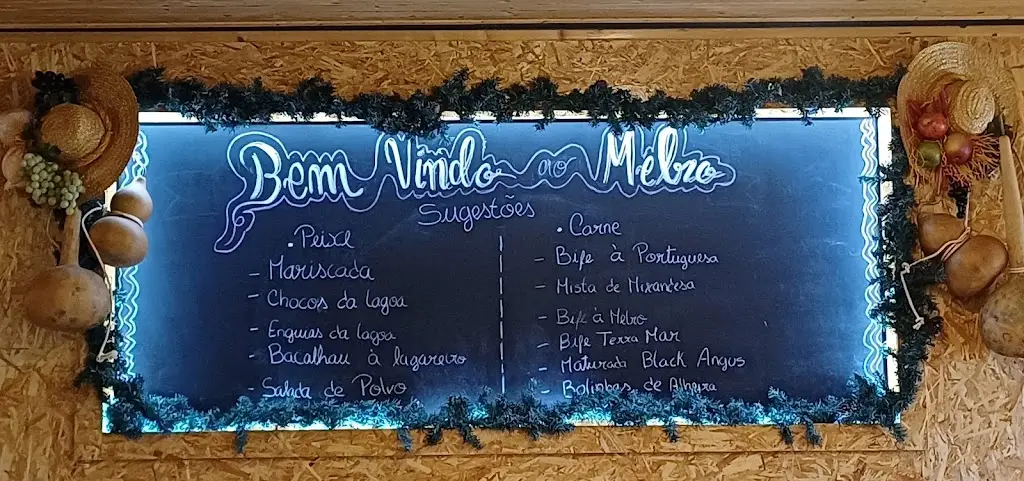 Bem Vindo ao Mélro
Sugestões
• Peixe
- Mariscada
- Chocos da lagoa
- Enguias da lagoa
- Bacalhau à lagareiro
- Salada de Polvo
• Carne
- Bife à Portuguesa
- Mista de Mirandesa
- Bife à Melro
- Bife Terra Mar
- Maturada Black Angus
- Bolinhas de Alheira